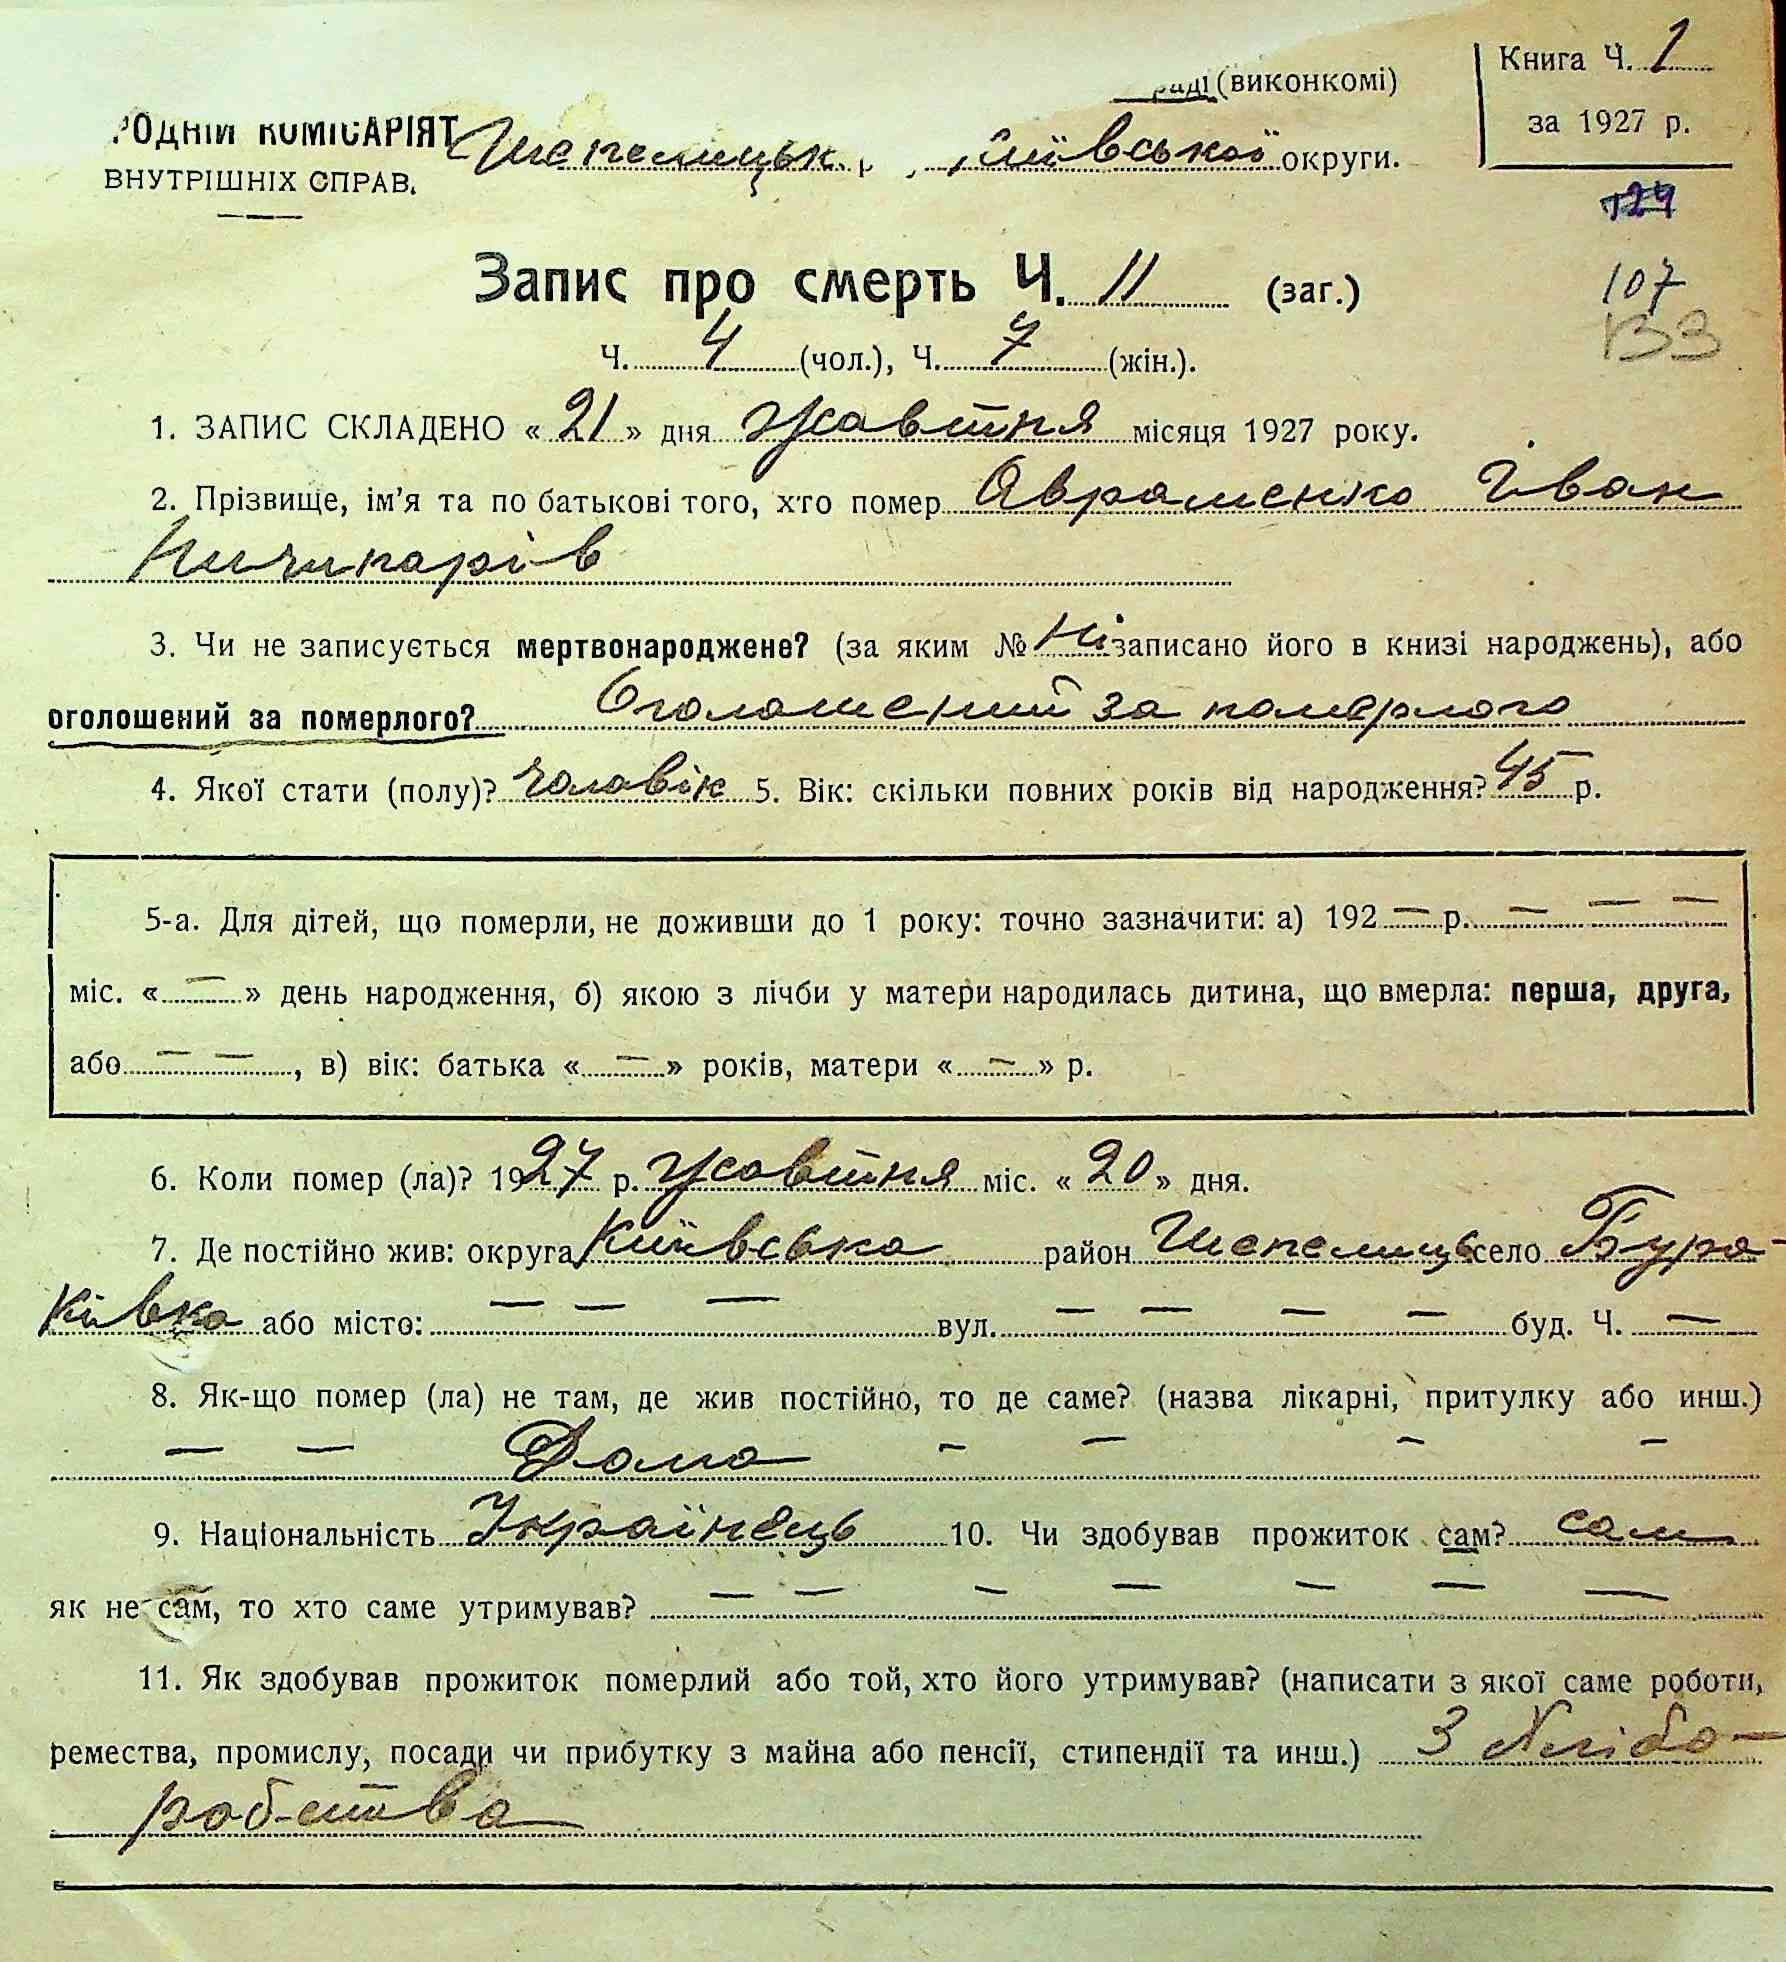 Книга Ч. 1
раді (виконкомі)
за 1927 р.
РОДНІЙ КОМІСАРІЯТ
ВНУТРІШНІХ СПРАВ.
Шепелицьк. р иївської округи.
124
107
133
Запис про смерть Ч. 11 (заг.)
Ч. 4 (чол.), Ч. 7 (жін.).
1. ЗАПИС СКЛАДЕНО « 21 » дня Жовтня місяця 1927 року.
2. Прізвище, ім'я та по батькові того, хто помер Авраменко Іван
Ничипорів
3. Чи не записується мертвонароджене? (за яким № Ні записано його в книзі народжень), або
оголошений за померлого? Оголошений за померлого
4. Якої стати (полу)? Чоловік 5. Вік: скільки повних років від народження? 45 р.
5-а. Для дітей, що померли, не доживши до 1 року: точно зазначити: а) 192 — р. — — —
міс. « — » день народження, б) якою з лічби у матери народилась дитина, що вмерла: перша, друга,
або — — , в) вік: батька « — » років, матери « — » р.
6. Коли помер (ла)? 1927 р. Жовтня міс. « 20 » дня.
7. Де постійно жив: округа Київська район Шепелицьк село Бура-
ківка або місто: — — — вул. — — — — буд. Ч. —
8. Як-що помер (ла) не там, де жив постійно, то де саме? (назва лікарні, притулку або инш.)
— — Дома — — — —
9. Національність Українець 10. Чи здобував прожиток сам? сам
як не сам, то хто саме утримував? — — — — — — —
11. Як здобував прожиток померлий або той, хто його утримував? (написати з якої саме роботи,
ремества, промислу, посади чи прибутку з майна або пенсії, стипендії та инш.) З Хлібо-
робства